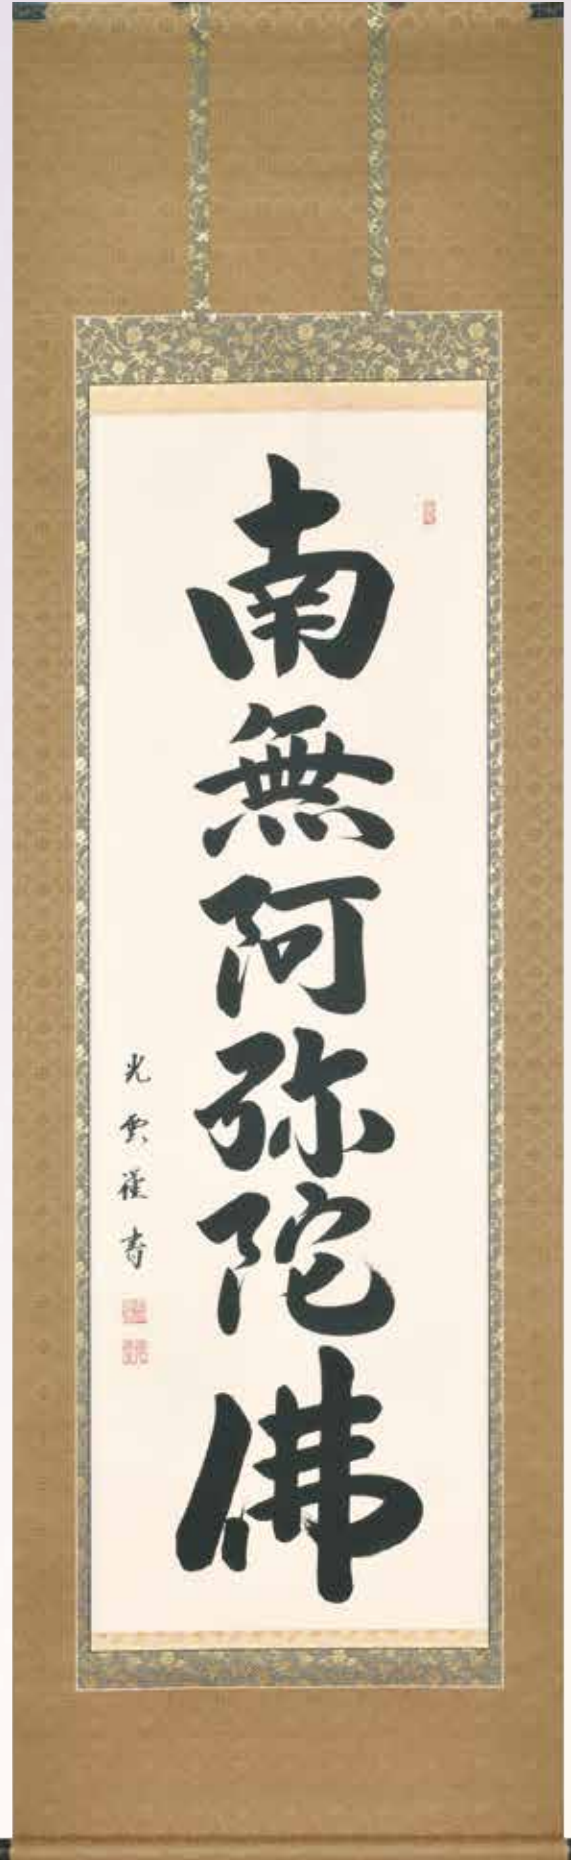 南無阿弥陀佛
光雲謹書